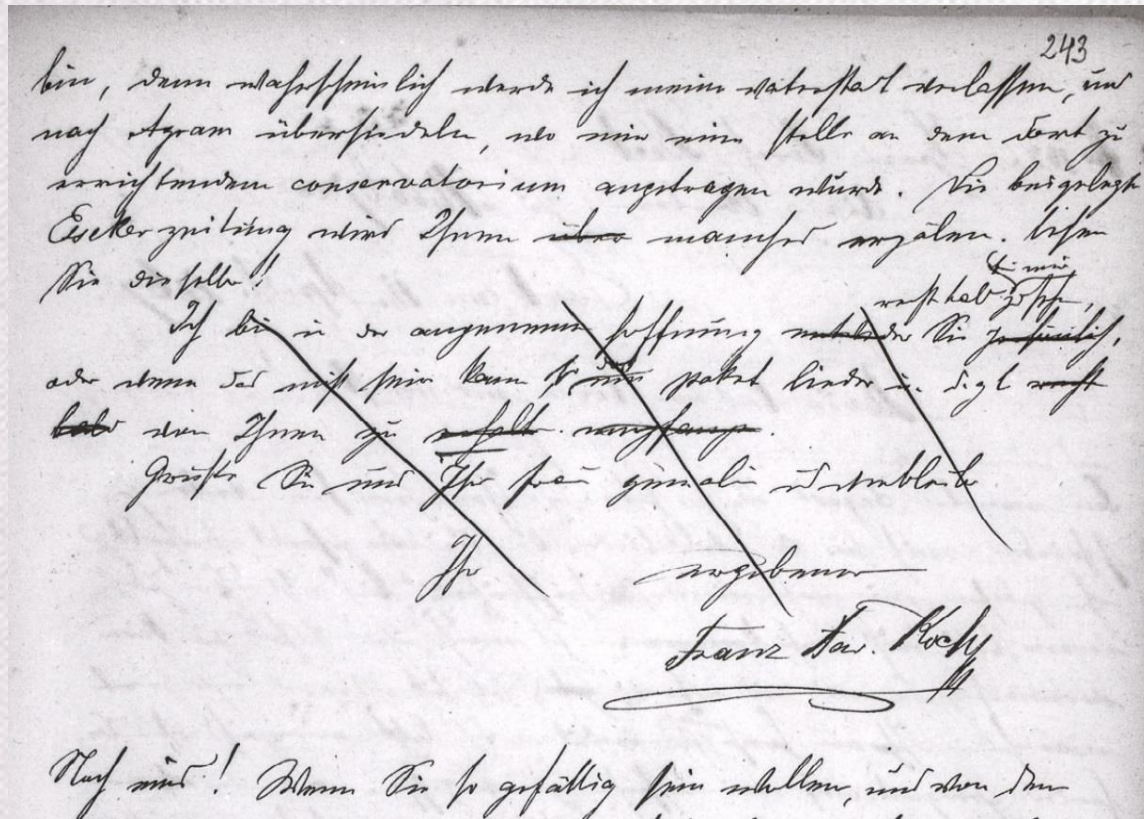 243
bin, denn wahrscheinlich werde ich meine vaterstadt verlassen, und
nach Agram übersiedeln, wo mir eine stelle an dem dort zu
errichtendem conservatorium angetragen wurde. Die beigelegte
Esekerzeitung wird Ihnen über manches erzälen. Lesen
Sie dieselbe!
recht bald zu sehen,
Ich bin in der angenemen hoffnung entweder Sie persönlich,
oder wenn das nicht sein kann so das paket lieder u. d. gl. recht
bald von Ihnen zu erhalt empfange.
Grüsse Sie und Ihre frau gemalin u verbleibe
Ihr ergebener
Franz Xav. Koch
Noch eins! Wenn Sie so gefällig sein wollen, und von den